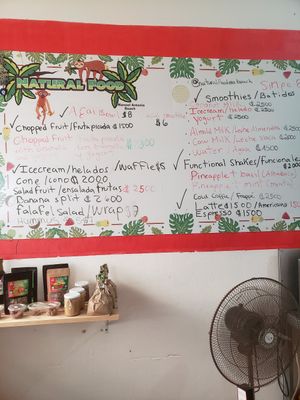 NATURAL FOOD
Manuel Antonio
Beach
✓ Açaí Bowl $8
$6
✓ Chopped fruit/fruta picada ₡1500
Chopped fruit/fruta picada
✓ Icecream/helados ✓ Waffle $5
cone/cono ₡2000
Salad fruit/ensalada frutas ₡2500
Banana split ₡2600
Falafel Salad/Wrap $7
Hummus
✓ Smoothies/Batidos
Icecream/helado ₡2500
Yogurt ₡2500
Almond Milk/leche Almendra ₡2500
Cow Milk/leche vaca ₡2500
Water/Agua ₡1500
✓ Functional Shakes/funcionales
Pineapple + basil (Albahaca)
Pineapple + mint (menta)
Cold Coffee/Frappe ₡2500
Latte ₡1500/Americano
Espresso ₡1500